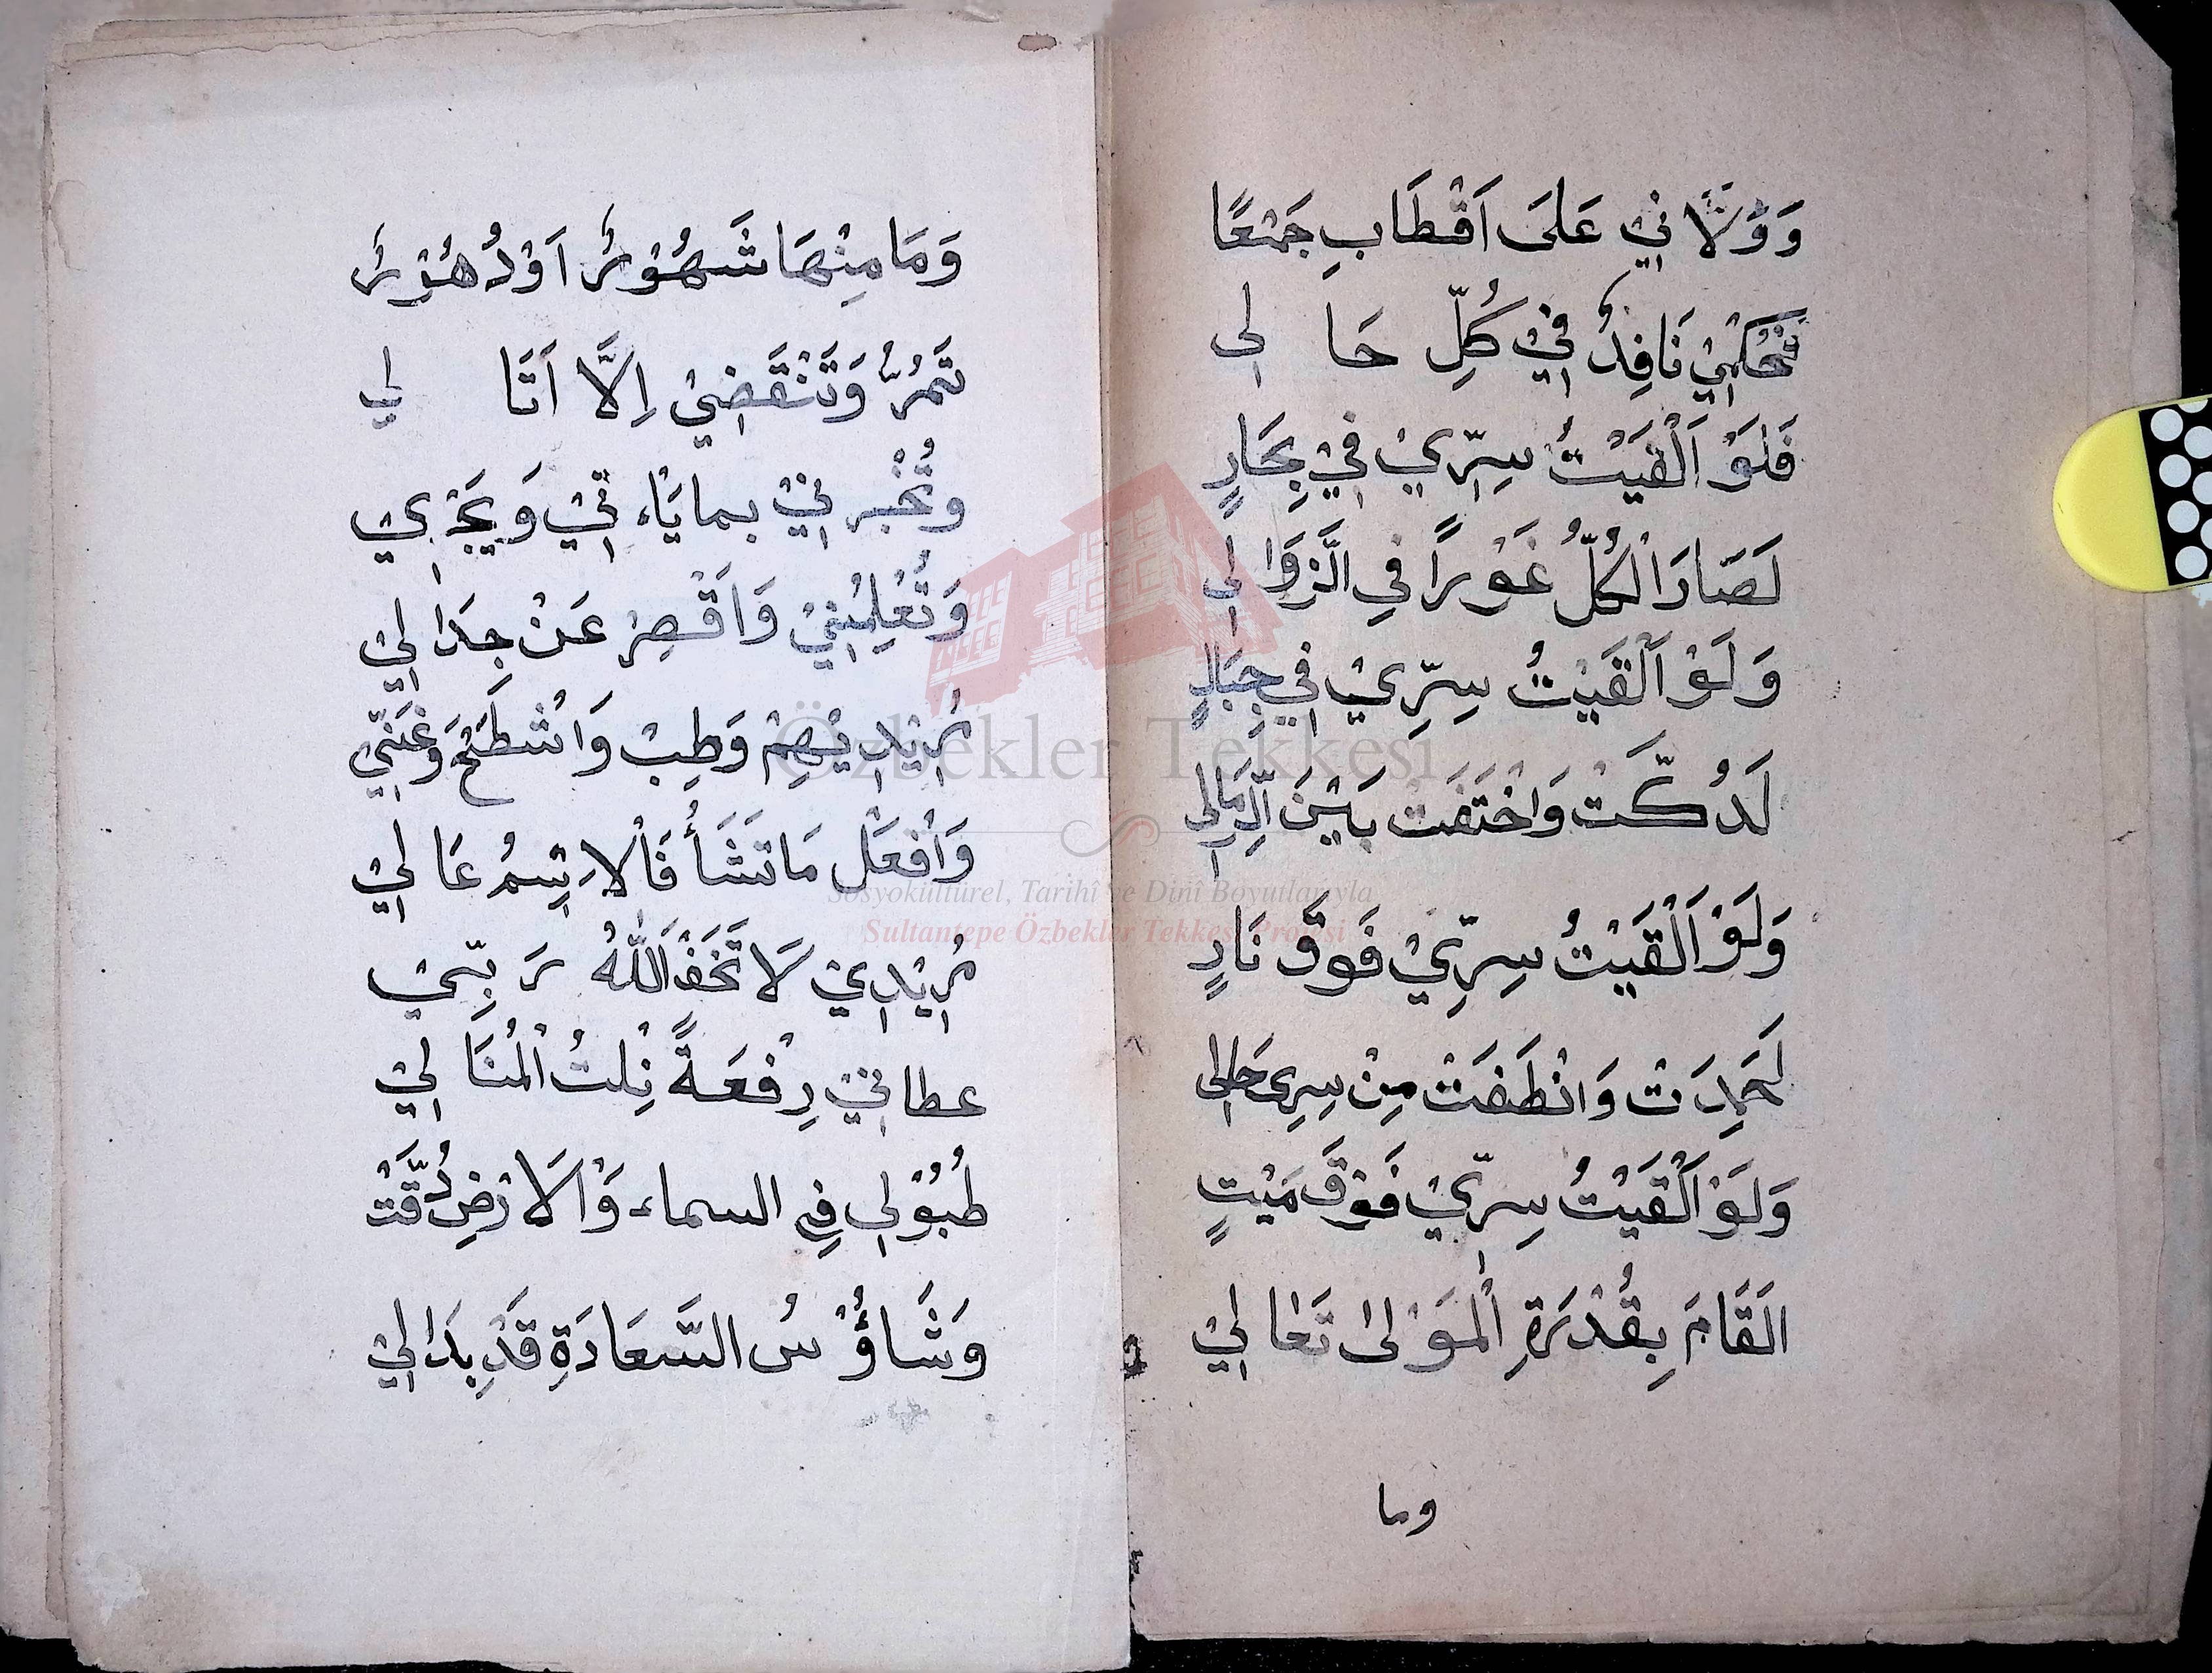 وَوَلَّانِي عَلَى اَقْطَابِ جَمْعًا
فَحُكْمِيْ نَافِدٌ فِيْ كُلِّ حَا لِى
فَلَوْ اَلْقَيْتُ سِرِّيْ فِيْ بِحَارٍ
لَصَارَ الْكُلُّ غَوْرًا فِي الزَّوَالِى
وَلَوْ اَلْقَيْتُ سِرِّيْ فِيْ جِبَالٍ
لَدُكَّتْ وَاخْتَفَتْ بَيْنَ الرِّمَالِى
وَلَوْ اَلْقَيْتُ سِرِّيْ فَوقَ نَارٍ
لَخَمِدَتْ وَانْطَفَتْ مِنْ سِرِى حَالِى
وَلَوْ اَلْقَيْتُ سِرِّيْ فَوْقَ مَيْتٍ
الَقَامَ بِقُدْرَةِ الْمَوْلىٰ تَعٰالِيْ
وما
وَمَا مِنْهَا شَهُوْرٌ اَوْ دُهُوْرٌ
تَمُرُّ وَتَنْقَضِيْ اِلَّا اَتَا لِي
وتُخْبرنِيْ بمايَاءتِيْ وَيَجْرِيْ
وَتُعْلِمُنِيْ وَاَقْصِرْ عَنْ جِدَالِيْ
مُرِيْدِيْ هِمْ وَطِبْ وَاشْطَحْ وَغَنِّيْ
وَافْعَلْ مَا تَشَأُ فَالْاِسْمُ عَالِيْ
مُرِيْدِيْ لَا تَخَفْ اَللّٰهُ رَبِّيْ
عطانِيْ رِفْعَةً نِلْتُ الْمُنَالِيْ
طُبُوْلِي فِي السماء وَالَارْضِ دُقَّتْ
وَشَاؤُسُ السَّعَادَةِ قَدْ بِدَالِيْ
Özbekler Tekkesi
Sosyokültürel, Tarihî ve Dinî Boyutlarıyla
Sultantepe Özbekler Tekkesi Projesi